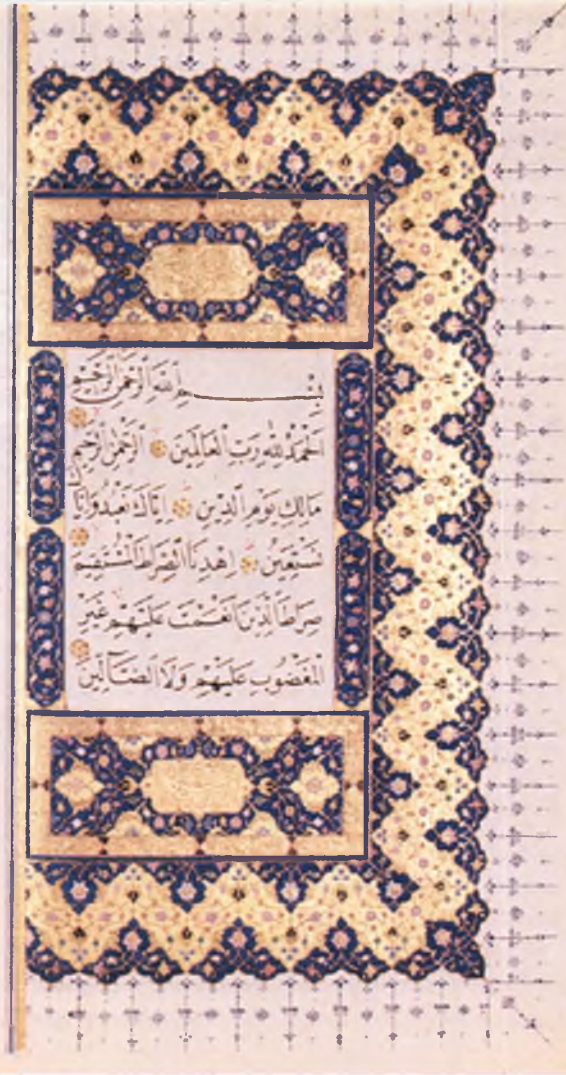 بِسْمِ ٱللَّهِ ٱلرَّحْمَٰنِ ٱلرَّحِيمِ
اَلْحَمْدُ لِلَّهِ رَبِّ الْعَالَمِينَ اَلرَّحْمٰنِ الرَّحِيمِ
مَالِكِ يَوْمِ الدِّينِ اِيَّاكَ نَعْبُدُ وَاِيَّاكَ
نَسْتَعِينُ اِهْدِنَا الصِّرَاطَ الْمُسْتَقِيمَ
صِرَاطَ الَّذِينَ اَنْعَمْتَ عَلَيْهِمْ غَيْرِ
الْمَغْضُوبِ عَلَيْهِمْ وَلَا الضَّآلِّينَ